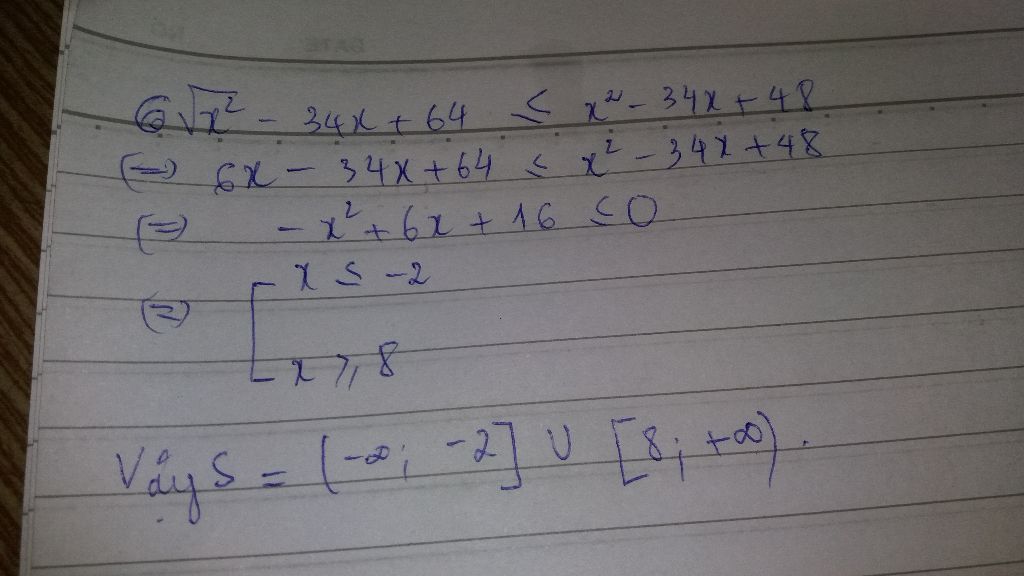 6√x² - 34x + 64 ≤ x² - 34x + 48
(=) 6x - 34x + 64 ≤ x² - 34x + 48
(=) - x² + 6x + 16 ≤ 0
(=) [ x ≤ -2
x ≥ 8
Vậy S = (-∞; -2] ∪ [8; +∞).